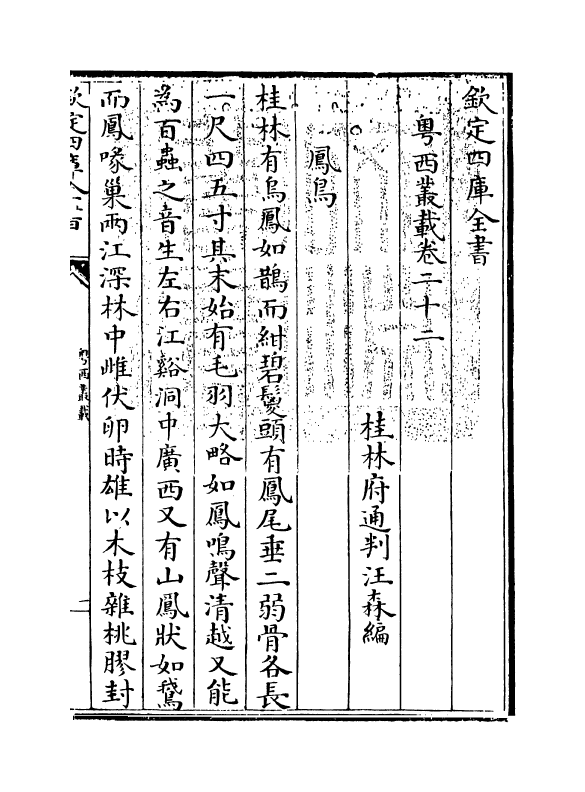 欽定四庫全書
粤西叢載卷二十二
桂林府通判汪森編
鳳鳥
桂林有烏鳳如鵲而紺碧鬉頭有鳳尾垂二弱骨各長
一尺四五寸其末始有毛羽大略如鳳鳴聲清越又能
為百蟲之音生左右江谿洞中廣西又有山鳳狀如鵞
而鳳喙巢兩江深林中雌伏卵時雄以木枝雜桃膠封
欽定四庫全書
粤西叢載